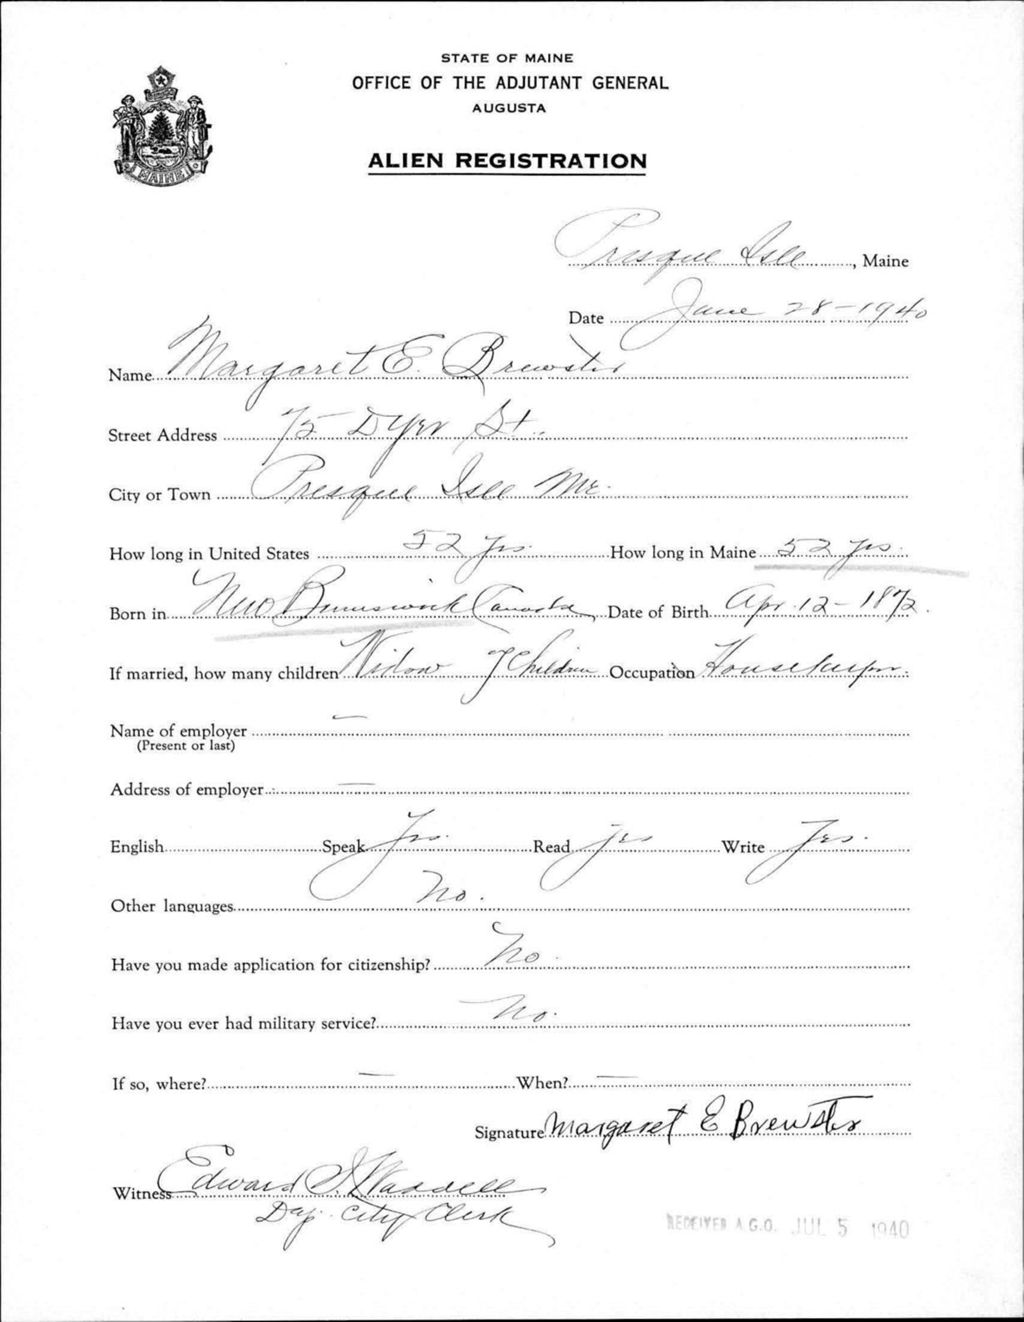 STATE OF MAINE
OFFICE OF THE ADJUTANT GENERAL
AUGUSTA
ALIEN REGISTRATION
MAINE
Presque Isle, Maine
Date June 28-1940
Name Margaret E. Brewster
Street Address 75 Dyer St.
City or Town Presque Isle Me.
How long in United States 52 yrs. How long in Maine 52 yrs.
Born in New Brunswick Canada Date of Birth Apr. 12-1872.
If married, how many children Widow 7 Children Occupation Housekeeper.
Name of employer —
(Present or last)
Address of employer —
English Speak Yes. Read yes Write Yes.
Other languages No.
Have you made application for citizenship? No.
Have you ever had military service? No.
If so, where? — When? —
Signature Margaret E Brewster
Witness Edward S. Waddell
Dep. City Clerk
RECEIVED A.G.O. JUL 5 1940